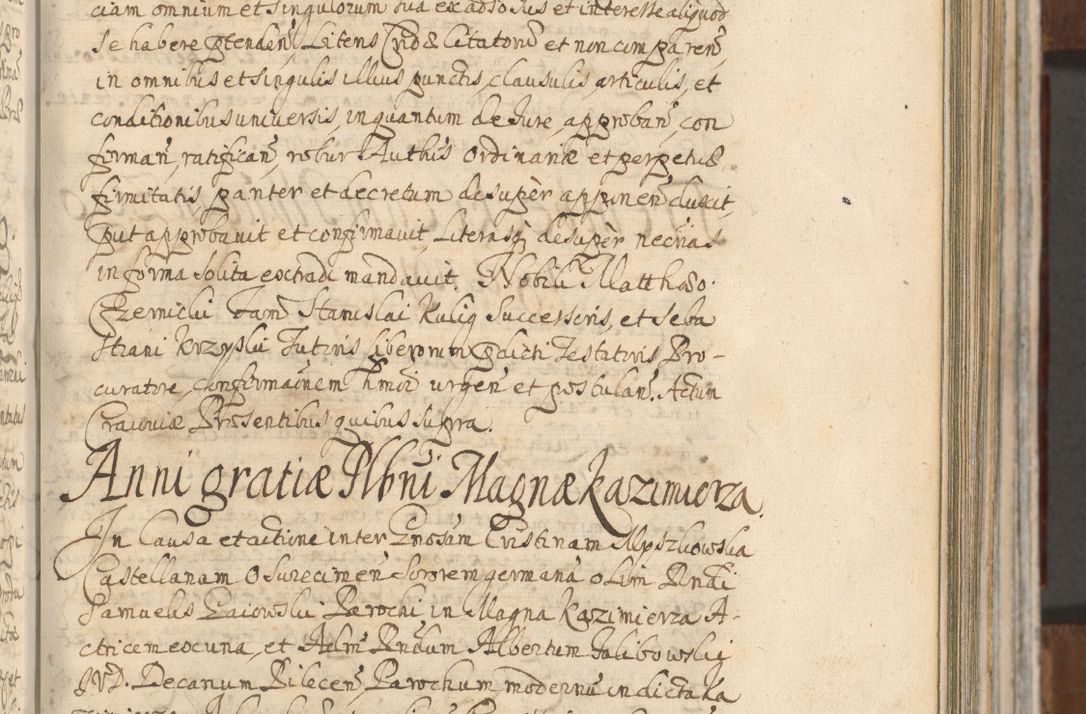 ciam omnium et singulorum sua ex adso suis et interesse aliquod
se habere ptenden̄ Litens Citatorū et non comparen̄
in omnibus et singulis illius punctis, clausulis, articulis, et
conditionibus universis, in quantum de Jure, approban̄, con
firman̄, ratifican̄, robur Authis Ordinariæ et perpetuæ
firmitatis, pariter et decretum desupèr apponen̄ duxit,
put approbavit et confirmavit, Literasq desupèr necrias
in forma solita extradi mandavit. Nobili Matthæo
Czernicki tam Stanislai Kulig Successoris, et Seba
stiani Krzyski Tutoris liberorum pdicti Testatoris Pro-
curatore, confirmaōnem hmoī urgen̄ et postulan̄. Actum
Cracoviæ Præsentibus quibus supra.
Anni gratiæ Plbnī Magnæ Kazimierza.
In Causa et actione inter Gnosam Cristinam Myszkowska
Castellanam Osviecimen̄ Sororem germanā olim Rndi
Samuelis Parochi in Magna Kazimierza A-
ctricem ex una, et Adm̄ Rndum Albertum Halibowski
JVD. Decanum Pilecen̄ Parochum modernū in dicta Ka